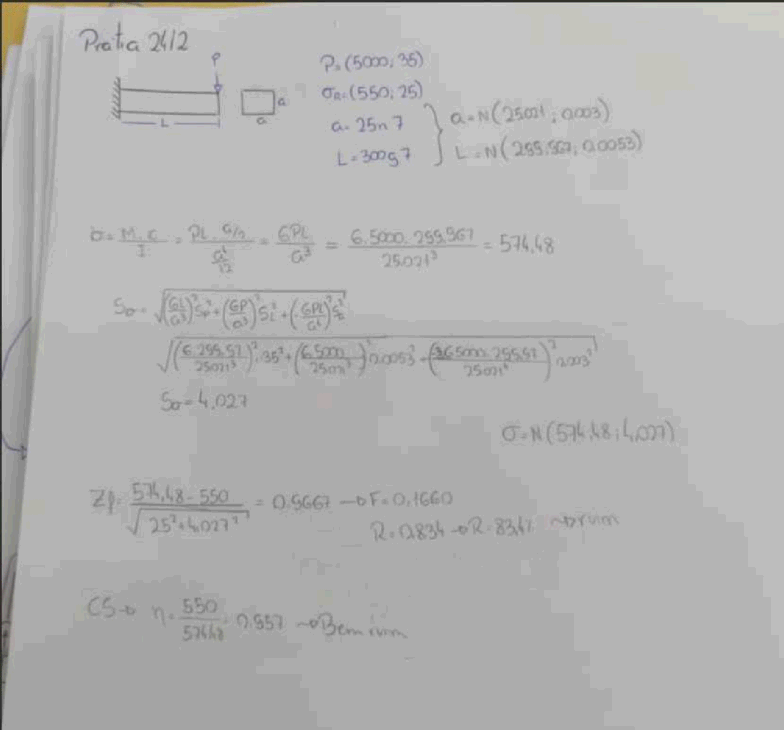 Pratia 24/2
P
a
L
a
P=(5000; 35)
σa=(550; 25)
a=25n7
L=300g7
a=N(25.021; 0.003)
L=N(299.967; 0.0053)
σ= M.C/I = PL.a/2 / a⁴/12 = 6PL/a³ = 6.5000.299.967/25.021³ = 574.48
Sσ= √((6L/a³)²Sp²+(6P/a³)²SL²+(
√((6.299.97/25.021³)².35²+(6.5000/25.021³)²0.0053²+(3.6.5000.299.97/25.021⁴)²0.003²)
Sσ=4.027
σ=N(574.48; 4.027)
574.48-550/√(25²+4.027²) = 0.9667 → F=0.1660
R=0.834 → R=83.4% → ruim
CS → η= 550/574.48 = 0.957 → Bem ruim